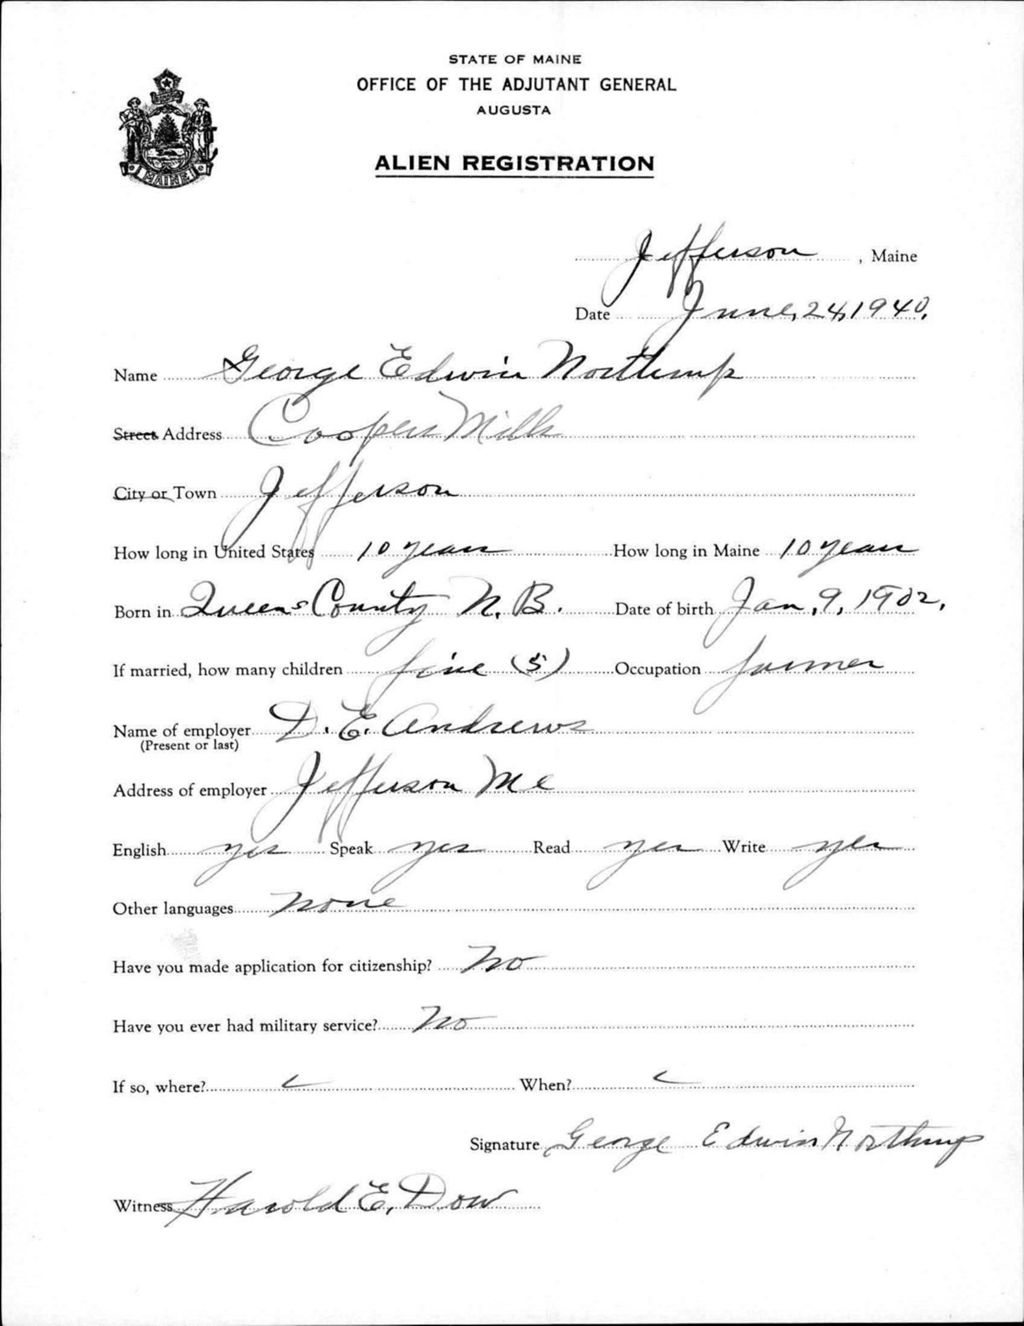 STATE OF MAINE
OFFICE OF THE ADJUTANT GENERAL
AUGUSTA
MAINE
ALIEN REGISTRATION
Jefferson, Maine
Date June, 24, 1940.
Name George Edwin Northrup
Street Address Coopers Mills
City or Town Jefferson
How long in United States 10 years How long in Maine 10 years
Born in Queens County N. B. Date of birth Jan, 9, 1902.
If married, how many children five (5) Occupation farmer
Name of employer D. E. Andrews
(Present or last)
Address of employer Jefferson Me
English yes Speak yes Read yes Write yes
Other languages none
Have you made application for citizenship? No
Have you ever had military service? No
If so, where? When?
Signature George Edwin Northrup
Witness Harold E. Dow